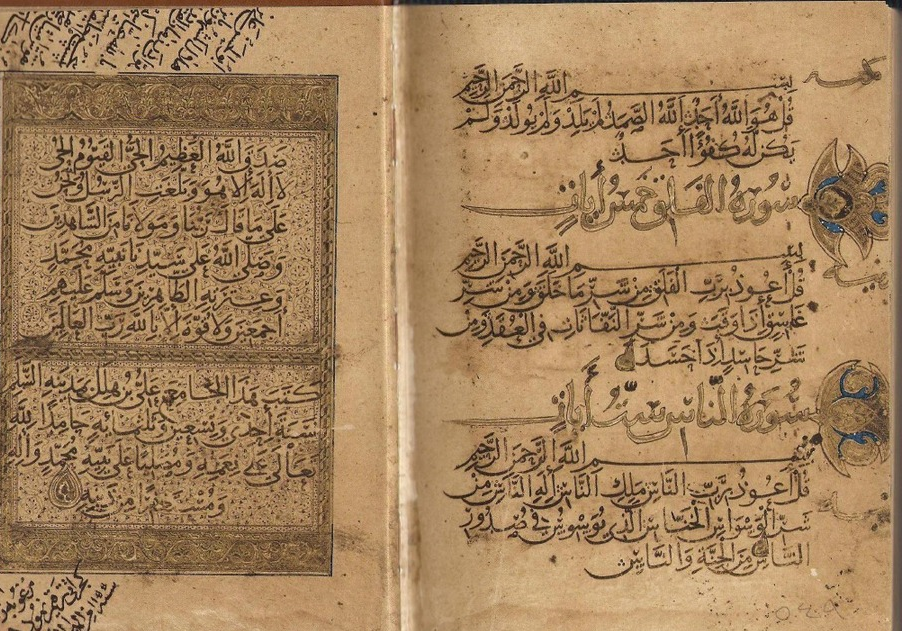 بسم الله الرحمن الرحيم
قل هو الله أحد الله الصمد لم يلد ولم يولد ولم
يكن له كفوا أحد
سورة الفلق خمس أيات
بسم الله الرحمن الرحيم
قل أعوذ برب الفلق من شر ما خلق ومن شر
غاسق إذا وقب ومن شر النفاثات في العقد ومن
شر حاسد إذا حسد
سورة الناس ست أيات
بسم الله الرحمن الرحيم
قل أعوذ برب الناس ملك الناس إله الناس من
شر الوسواس الخناس الذي يوسوس في صدور
الناس من الجنة والناس
صدق الله العظيم الحي القيوم الحي
لا إله إلا هو وبلغت الرسل ونحن
على ما قال ربنا ومولانا من الشاهدين
وصلى الله على سيدنا نبيه محمد
وعترته الطاهرين وسلم عليهم
أجمعين ولا قوة إلا بالله رب العالمين
كتب هذا الجامع علي بن هلال بمدينة السلم
سنة أحدى وتسعين وثلثمائة حامدا لله
تعالى على نعمه ومصليا على نبيه محمد وآله
ومستغفرا من ذنبه